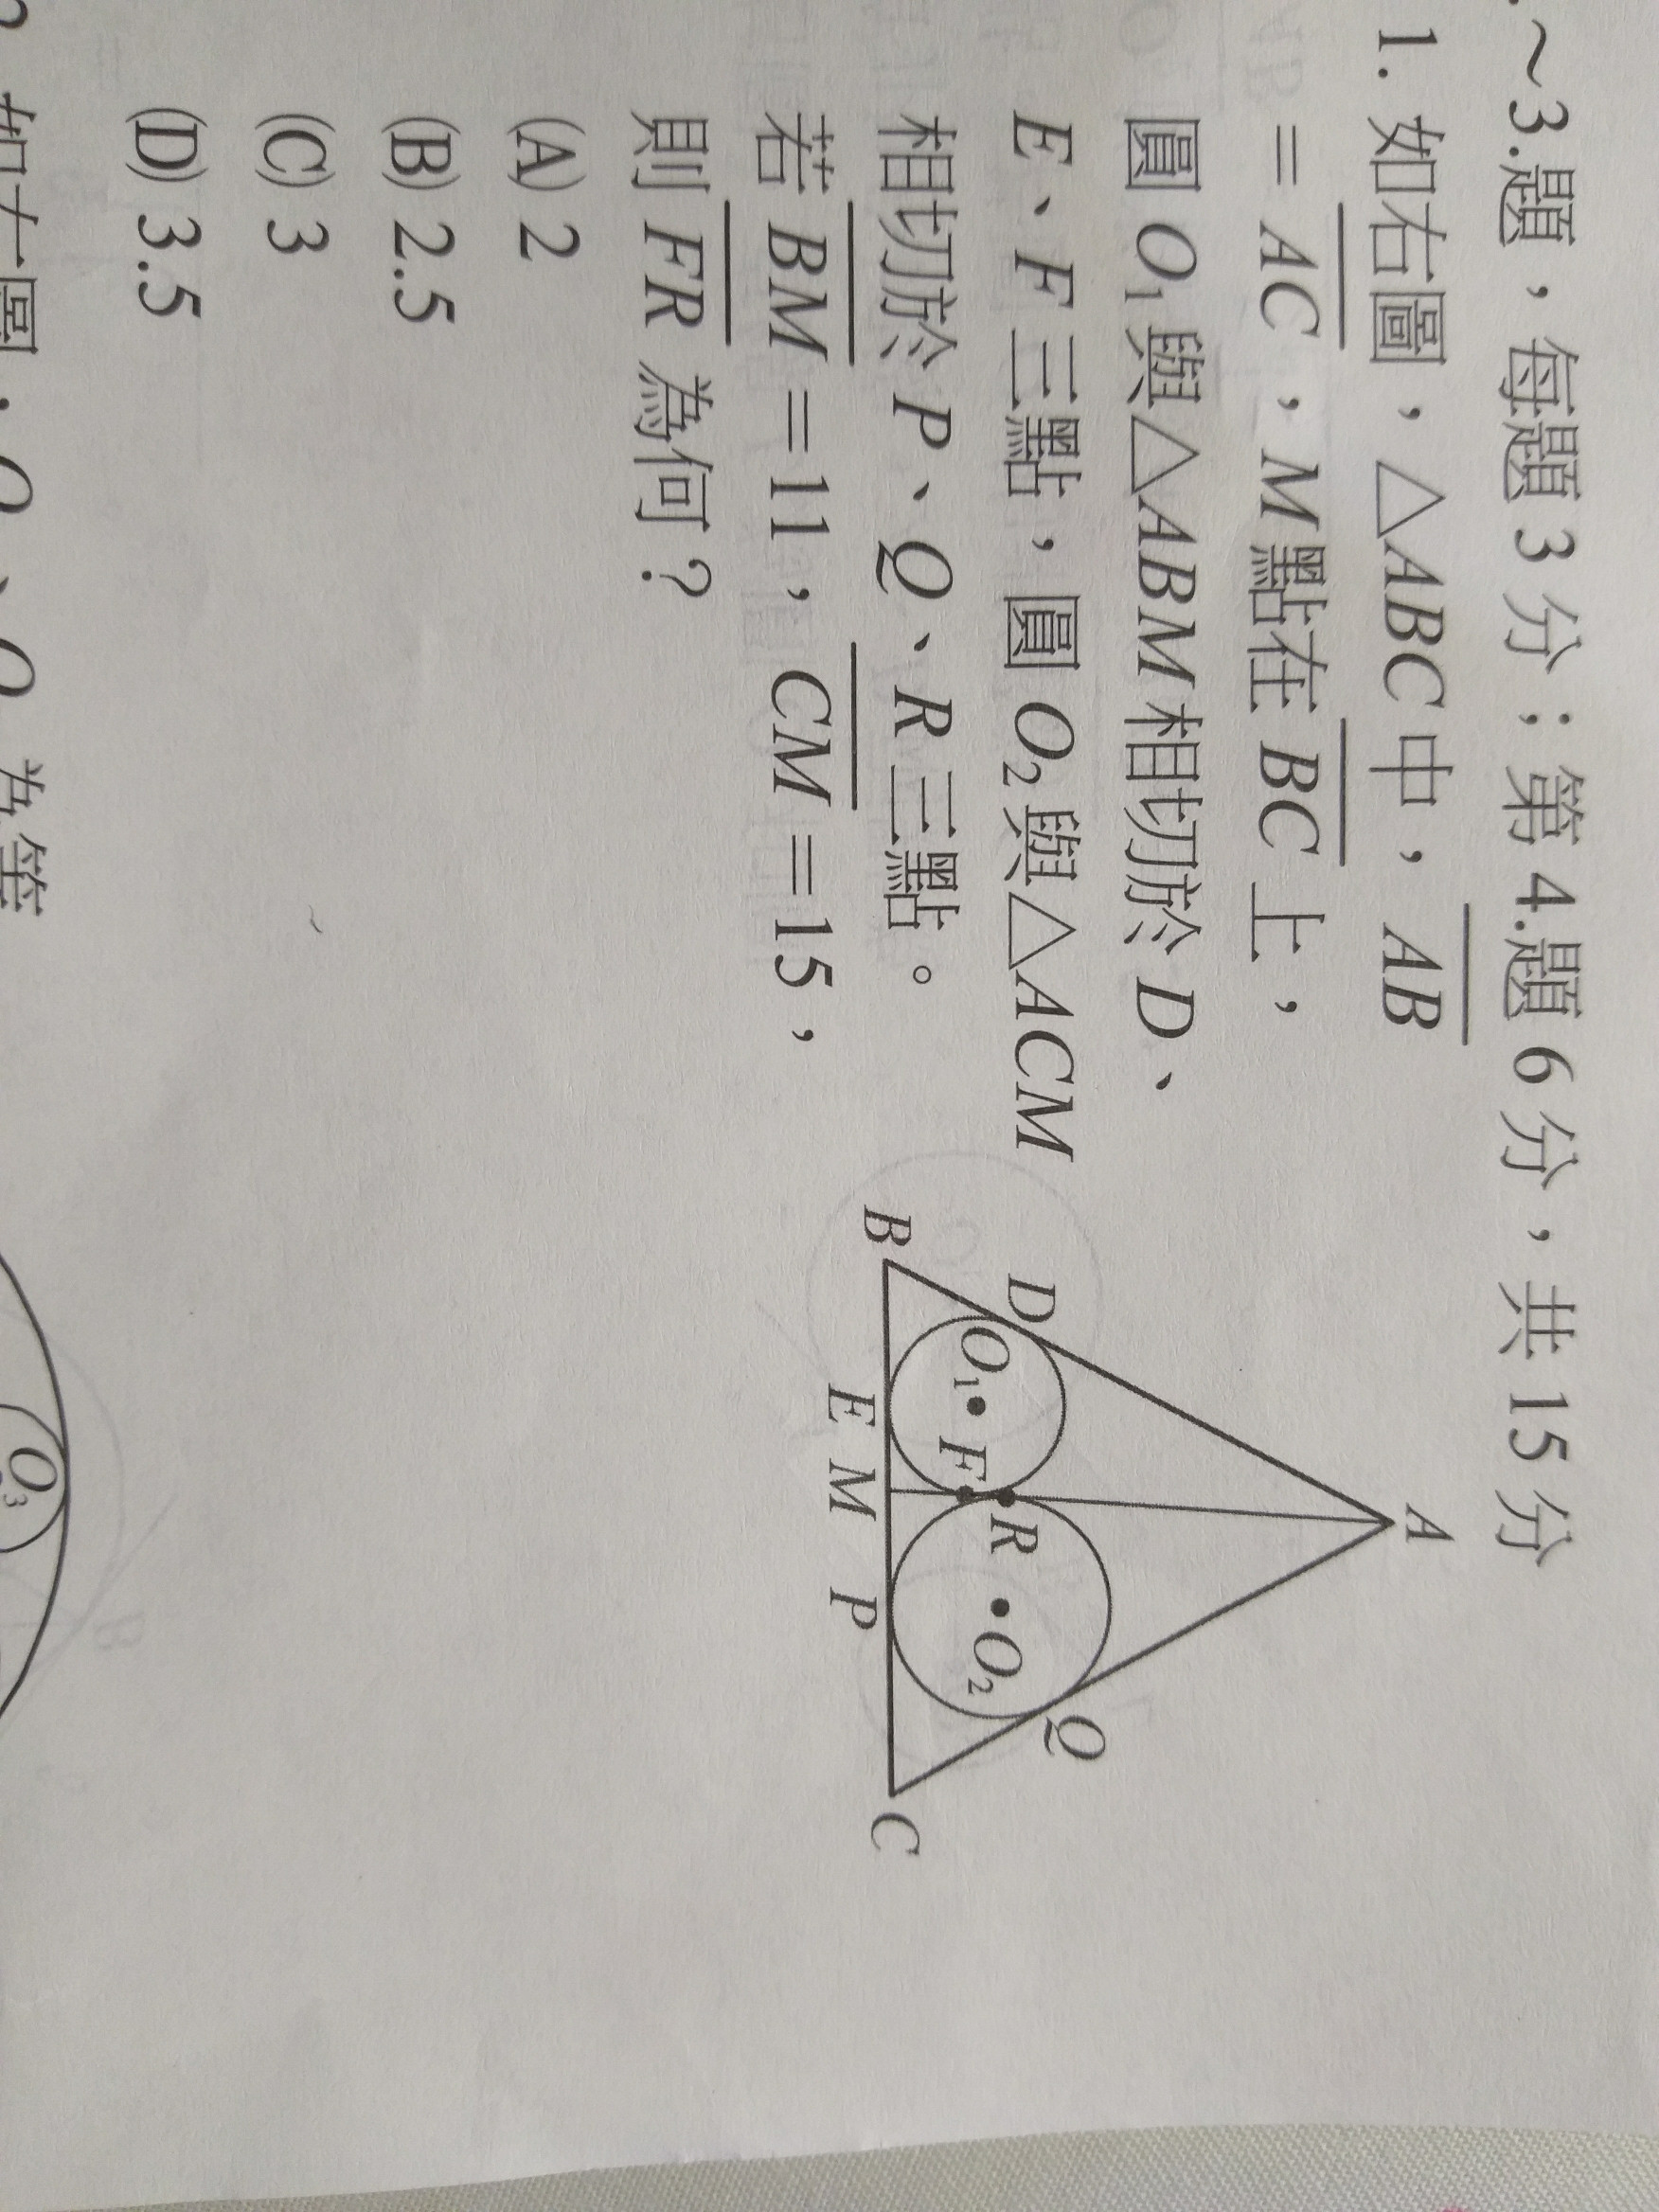 ~3.題，每題 3 分；第 4.題 6 分，共 15 分
1. 如右圖，△ABC 中，AB
= AC，M 點在 BC 上，
圓 O₁ 與△ABM 相切於 D、
E、F 三點，圓 O₂ 與△ACM
相切於 P、Q、R 三點。
若 BM = 11，CM = 15，
則 FR 為何？
(A) 2
(B) 2.5
(C) 3
(D) 3.5
A
D
Q
R
O₁
F
O₂
B
E
M
P
C
O₃